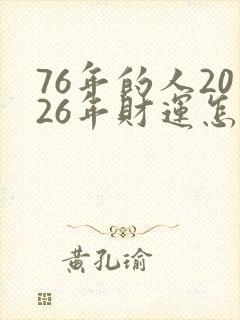 76年的人20
26年財運怎
黄孔瑜